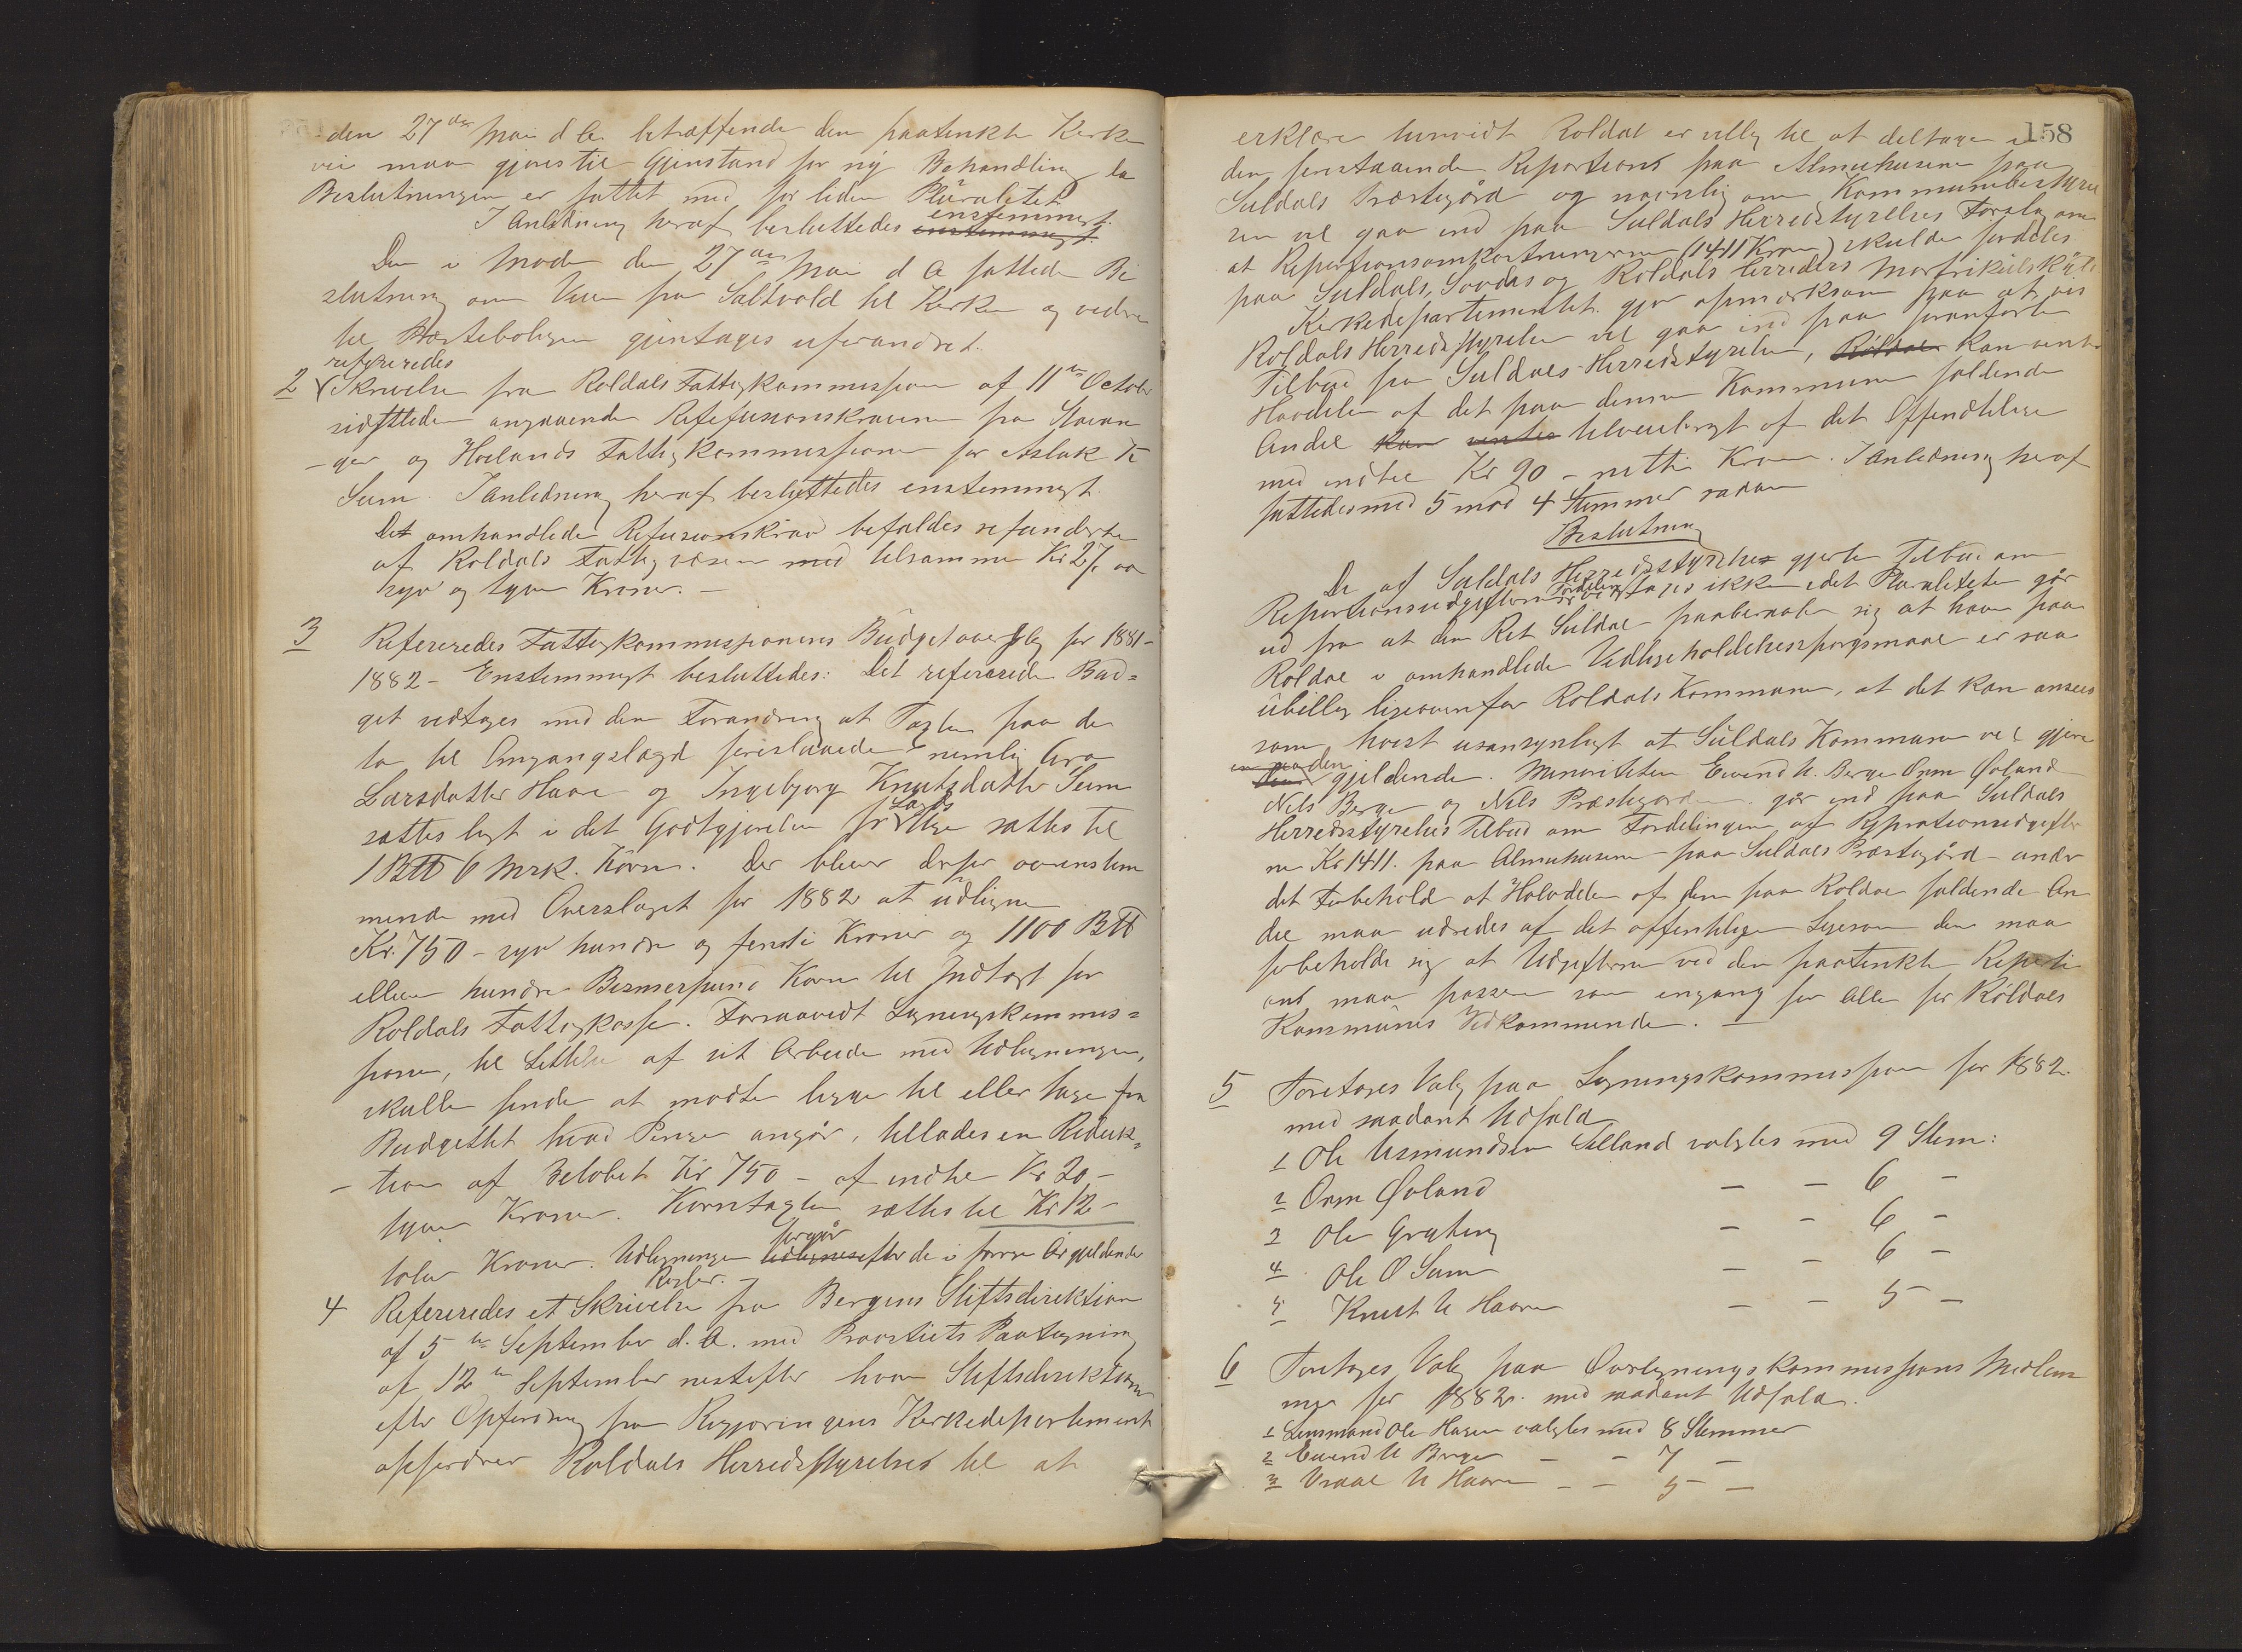 den 27de Mai d A. betræffende den paatenkte Kirke
vei maa gjøres til Gjenstand for ny Behandling da
Beslutningen er fattet med for liden Pluralitet
I Anledning heraf besluttedes enstemmigt
Den i Møde den 27de Mai d A fattede Be
slutning om Veien fra Saltvold til Kirken og videre
til Præsteboligen gjentages uforandret.
refereredes
2 Skrivelse fra Roldals Fattigkommission af 11te October
sidstleden angaaende Refusionskravene fra Stavan
-ger og Høilands Fattigkommissioner for Aslak
Seim. I Anledning heraf besluttedes enstemmigt
Det omhandlede Refusionskrav befaldes refunderte
af Roldals Fattigvæsen med tilsammen Kr 27,
syv og tyve Kroner. -
3 Refereredes Fattigkommissionens Budgetoverslag for 1881-
1882 - Enstemmigt besluttedes: Det refererede Bud=
get vedtages med den Forandring at Taxten paa de
to til Omgangslægd foreslaaede nemlig Gro
Larsdatter Haare og Ingebjørg Knutsdatter Seim
sættes lagt i det Godtgjørelsen for Lægds sættes til
1 B℔ 6 Mrk. Korn. Der bliver derfor overenstem
mende med Overslaget for 1882 at udligne
Kr. 750 - syv hundre og femti Kroner og 1100 B℔
elleve hundre Bismerpund Korn til Indtægt for
Roldals Fattigkasse. Forsaavidt Ligningskommis=
sionen, til Lettelse af sit Arbeide med Udligningen,
skulle finde at maatte legge til eller tage fra
Budgettet hvad Penge angår, tillades en Reduk=
- tion af Beløbet Kr 750 - af indtil Kr 20 -
tyve Kroner. Korntaxten sættes til Kr 12 -
tolv Kroner. Udligningen foregår efter de i forrige År gjeldende
Regler.
4 Refereredes et Skrivelse fra Bergens Stiftsdirektion
af 5te September d. A. med Provstiets Paategning
af 12te September nestefter hvori Stiftsdirektionen
efter Opfordring fra Regjeringens Kirkedepartement
opfordrer Roldals Herredsstyrelse til at
158
erklære hvorvidt Roldal er villig til at deltage i
den forestaaende Reparations paa Almuehusene paa
Suldals Præstegård og navnlig om Kommunebestyrel
sen vil gaa ind paa Suldals Herredstyrelses Forslag om
at Reparationsomkostningerne (1411 Kroner) skulde fordeles
paa Suldals, Sovdes og Roldals Herreders Matrikulskyld
Kirkedepartementet gjør opmerksom paa at vis
Roldals Herredsstyrelse vil gaa ind paa foranførte
Tilbud fra Suldals Herredstyrelse, Roldal kan ventes
Havdelen af det paa denne Kommune faldende
Andel kan ventes tilveiebragt af det Offendtlige
med indtil Kr 90 - nitti Kroner. I Anledning heraf
fattedes med 5 mod 4 Stemmer sadan
Beslutning
De af Suldals Herredsstyrelse gjorte Tilbud om
Reparationsudgifternes Fordeling vedtages ikke idet Pluraliteten går
ud fra at den Ret Suldal paaberaaber sig at have paa
Roldal i omhandlede Vedligeholdelsesspørgsmaal er saa
ubillig ligeoverfor Roldals Kommune, at det kan ansees
som høist usansynligt at Suldals Kommune vil gjøre
den gjeldende. Minoriteten Eivend U. Berge Orm Øvland
Nils Berge og Nils Præstegarden går ind paa Suldals
Herredsstyrelses Tilbud om Fordelingen af Reparationsudgifter
ne Kr 1411. paa Almuehusene paa Suldals Præstegård under
det Forbehold at Halvdelen af den paa Roldal faldende An
del maa udredes af det offentlige Ligesom den maa
forbeholde sig at Udgifterne ved den paatenkte Reparati
ons maa passere som engang for Alle for Roldals
Kommunes Vedkommende. -
5 Foretoges Valg paa Ligningskommission for 1882.
med saadant Udfald
1 Ole AsmundsenÆlland valgtes med 9 Stem:
2 Orm Øvland - - 6 -
3 Ole Gryting - - 6 -
4 Ole O Seim - - 6 -
5 Knut U Haare - - 5 -
6 Foretoges Valg paa Overligningskommissions Medlem
mer for 1882. med saadant Udfald.
1 Lensmand Ole Hagen valgtes med 8 Stemmer
2 Eivend U Berge - - 7 -
3 Vraal U Haare - - 5 -